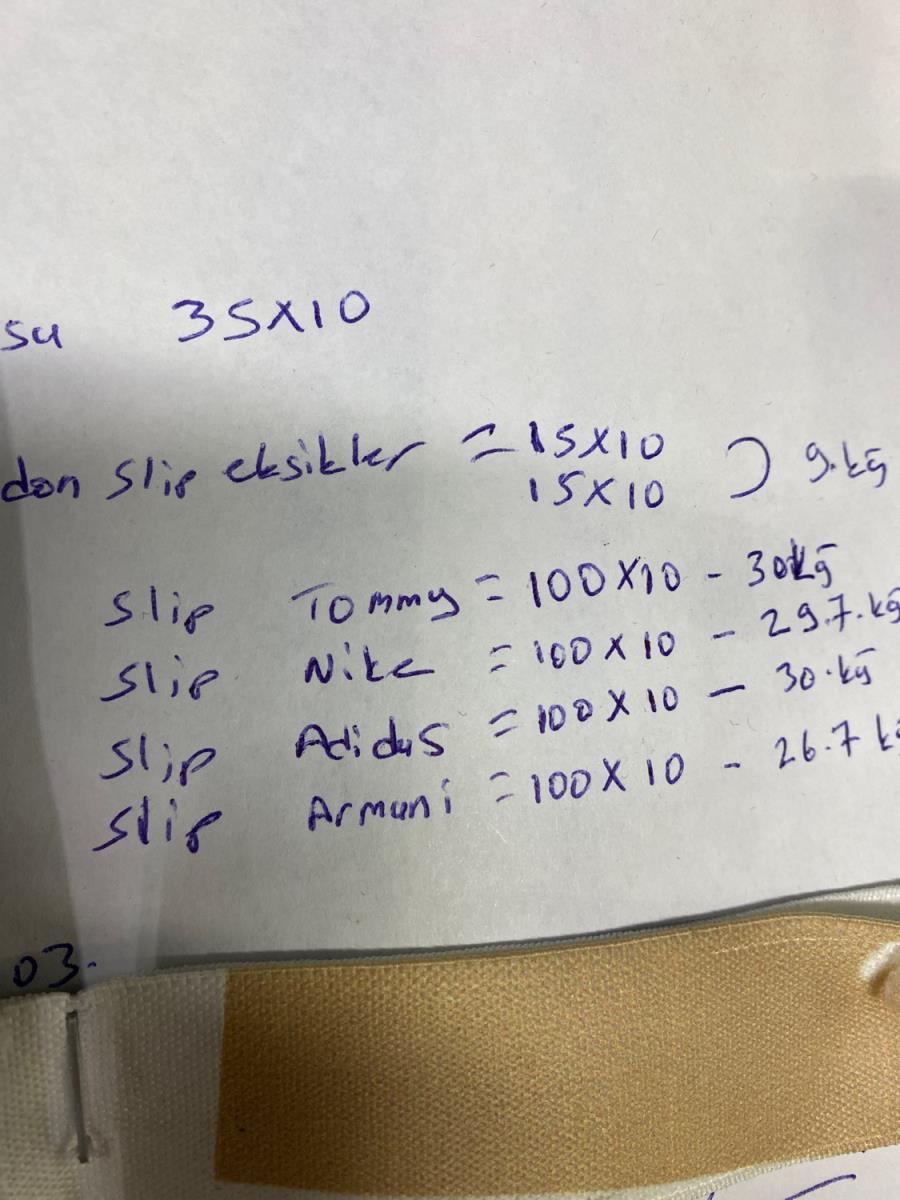 su 35X10
don Slip eksikler = 15X10
15X10 ) 9.kg
Slip Tommy = 100X10 - 30kg
Slip Nike = 100X10 - 29.7.kg
Slip Adidas = 100X10 - 30.kg
Slip Armani = 100X10 - 26.7 kg
03.